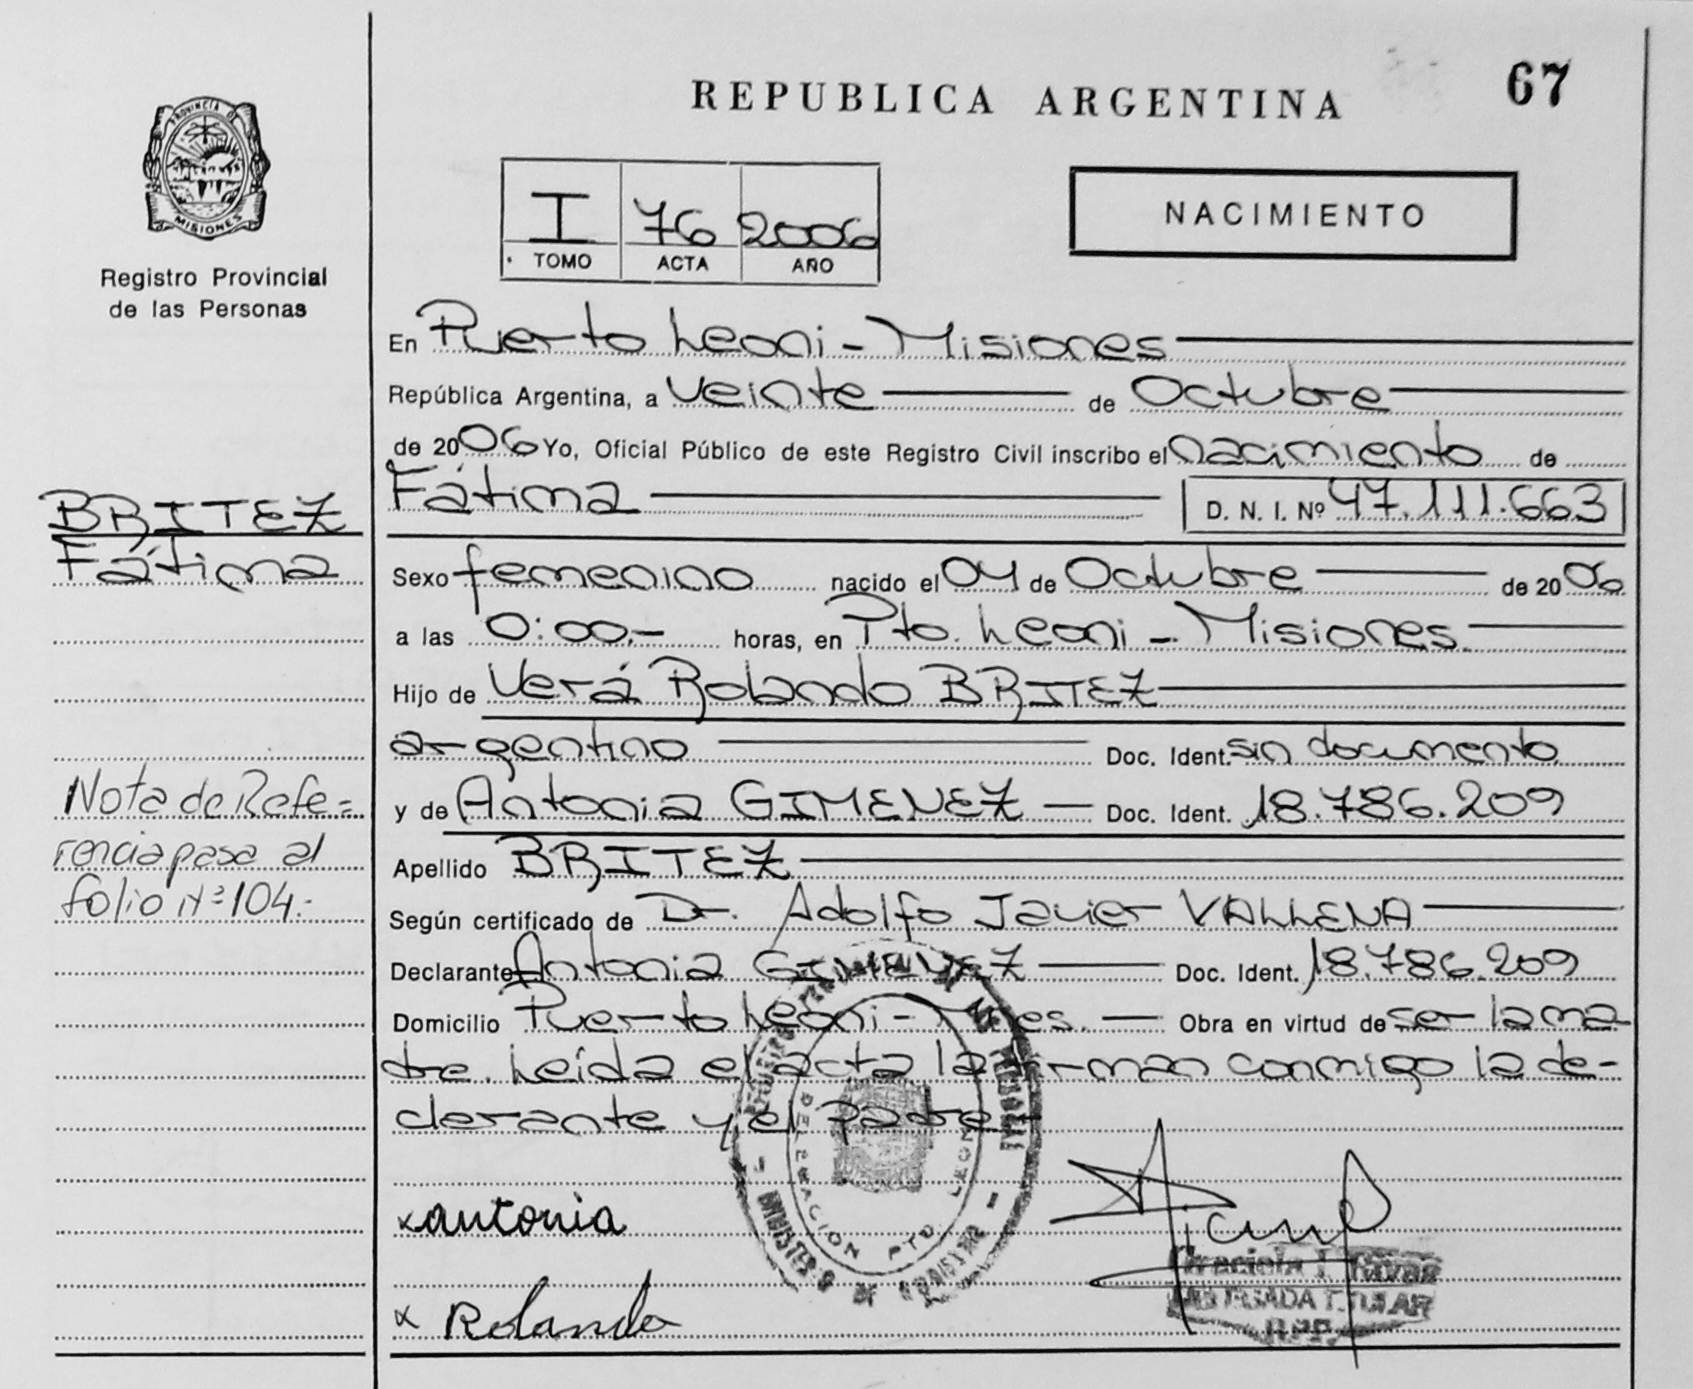 PROVINCIA DE
MISIONES
Registro Provincial
de las Personas
REPUBLICA ARGENTINA
67
I 76 2006
TOMO ACTA AÑO
NACIMIENTO
En Puerto Leoni - Misiones
República Argentina, a veinte de Octubre
de 2006 Yo, Oficial Público de este Registro Civil inscribo el nacimiento de
Fátima D. N. I. Nº 47.111.663
BRITEZ
Fátima
Sexo femenino nacido el 04 de Octubre de 2006
a las 0:00.- horas, en Pto. Leoni - Misiones.
Hijo de Verá Rolando BRITEZ
argentino Doc. Ident. sin documento
y de Antonia GIMENEZ Doc. Ident. 18.786.209
Nota de Refe=
rencia pasa al
folio Nº 104.-
Apellido BRITEZ
Según certificado de Dr. Adolfo Javier VALLENA
Declarante Antonia GIMENEZ Doc. Ident. 18.786.209
Domicilio Puerto Leoni - Mnes. Obra en virtud de ser la ma
dre. Leída el acta la firman conmigo la de-
clarante y el Padre
x antonia
x Rolando
Graciela
DELEGADA TITULAR
R.P.P.
PTO LEONI